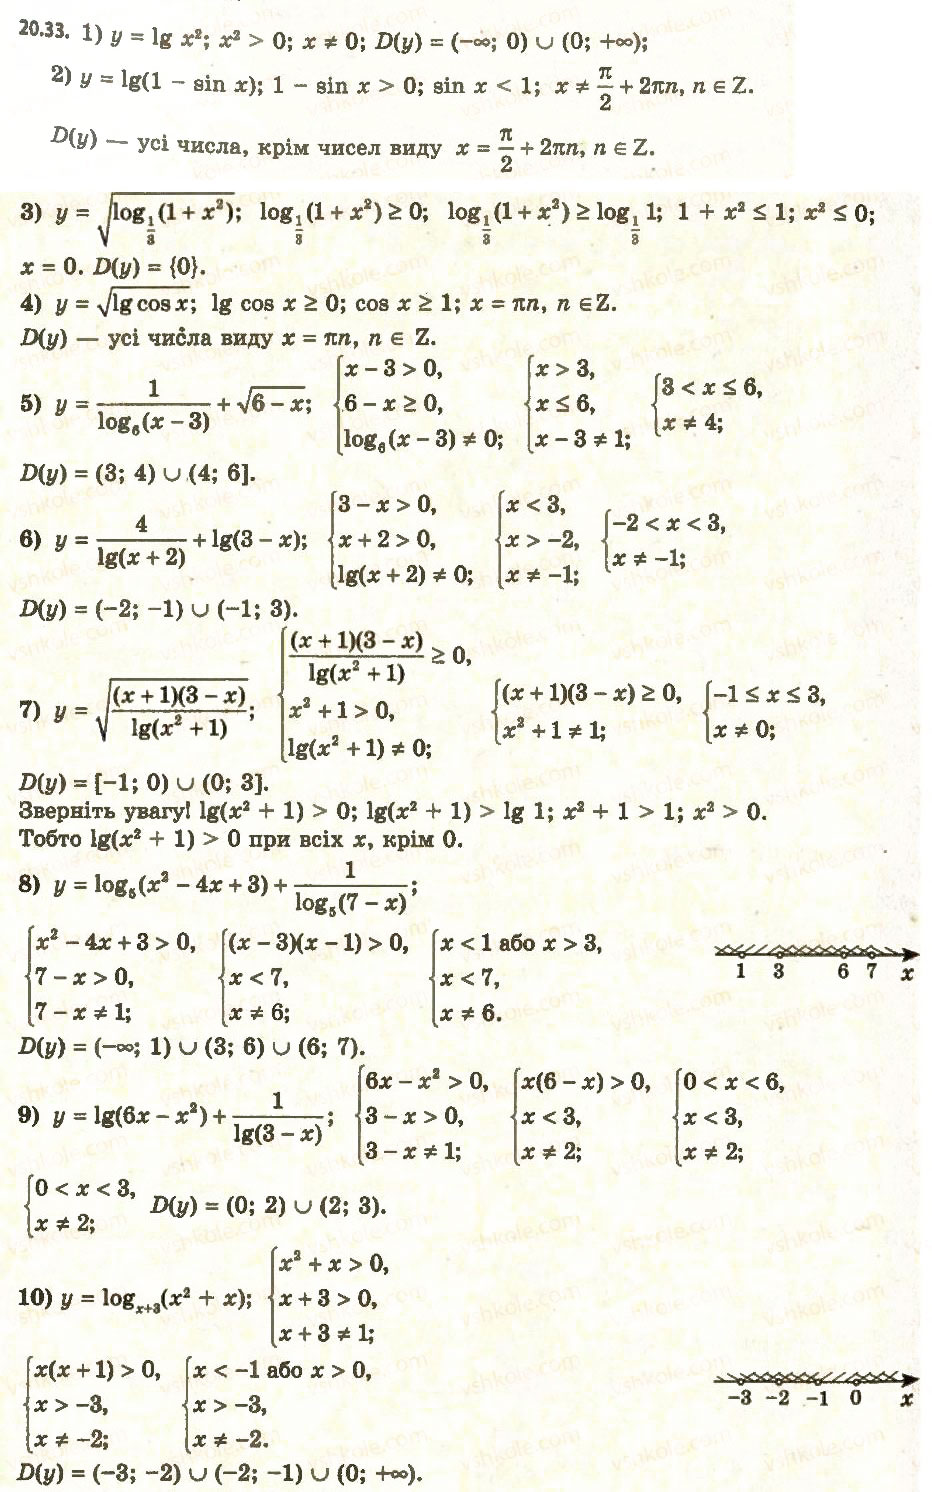 20.33. 1) y = lg x²; x² > 0; x ≠ 0; D(y) = (−∞; 0) ∪ (0; +∞);
2) y = lg(1 − sin x); 1 − sin x > 0; sin x < 1; x ≠ π/2 + 2πn, n ∈ Z.
D(y) — усі числа, крім чисел виду x = π/2 + 2πn, n ∈ Z.
3) y = √(log_{1/3}(1 + x²)); log_{1/3}(1 + x²) ≥ 0; log_{1/3}(1 + x²) ≥ log_{1/3} 1; 1 + x² ≤ 1; x² ≤ 0;
x = 0. D(y) = {0}.
4) y = √(lg cos x); lg cos x ≥ 0; cos x ≥ 1; x = πn, n ∈ Z.
D(y) — усі числа виду x = πn, n ∈ Z.
5) y = 1/(log₆(x − 3)) + √(6 − x); {x − 3 > 0, 6 − x ≥ 0, log₆(x − 3) ≠ 0; {x > 3, x ≤ 6, x − 3 ≠ 1; {3 < x ≤ 6, x ≠ 4;
D(y) = (3; 4) ∪ (4; 6].
6) y = 4/(lg(x + 2)) + lg(3 − x); {3 − x > 0, x + 2 > 0, lg(x + 2) ≠ 0; {x < 3, x > −2, x ≠ −1; {−2 < x < 3, x ≠ −1;
D(y) = (−2; −1) ∪ (−1; 3).
7) y = √((x + 1)(3 − x)/(lg(x² + 1))); {(x + 1)(3 − x)/(lg(x² + 1)) ≥ 0, x² + 1 > 0, lg(x² + 1) ≠ 0; {(x + 1)(3 − x) ≥ 0, x² + 1 ≠ 1; {−1 ≤ x ≤ 3, x ≠ 0;
D(y) = [−1; 0) ∪ (0; 3].
Зверніть увагу! lg(x² + 1) > 0; lg(x² + 1) > lg 1; x² + 1 > 1; x² > 0.
Тобто lg(x² + 1) > 0 при всіх x, крім 0.
8) y = log₅(x² − 4x + 3) + 1/(log₅(7 − x));
{x² − 4x + 3 > 0, 7 − x > 0, 7 − x ≠ 1; {(x − 3)(x − 1) > 0, x < 7, x ≠ 6; {x < 1 або x > 3, x < 7, x ≠ 6.
1 3 6 7 x
D(y) = (−∞; 1) ∪ (3; 6) ∪ (6; 7).
9) y = lg(6x − x²) + 1/(lg(3 − x)); {6x − x² > 0, 3 − x > 0, 3 − x ≠ 1; {x(6 − x) > 0, x < 3, x ≠ 2; {0 < x < 6, x < 3, x ≠ 2;
{0 < x < 3, x ≠ 2; D(y) = (0; 2) ∪ (2; 3).
10) y = log_{x+3}(x² + x); {x² + x > 0, x + 3 > 0, x + 3 ≠ 1;
{x(x + 1) > 0, x > −3, x ≠ −2; {x < −1 або x > 0, x > −3, x ≠ −2.
−3 −2 −1 0 x
D(y) = (−3; −2) ∪ (−2; −1) ∪ (0; +∞).